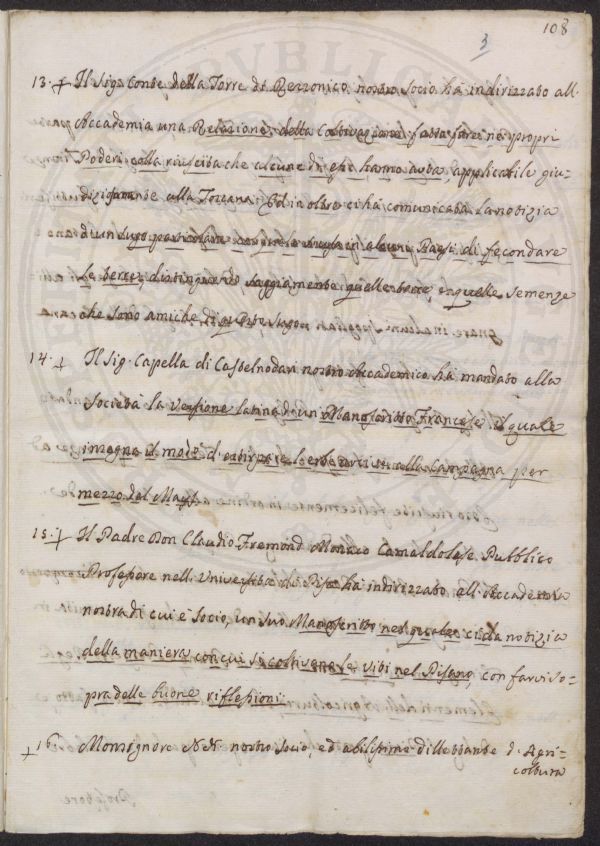 108
3
13. + Il Sig. Conte della Torre di Rezzonico nostro socio ha indirizzato all'
Accademia una Relazione della Coltivazione fatta fare ne' propri
Poderi colla riuscita che alcune di essi hanno auta, applicabile giu-
diziosamente alla Toscana. Ed in oltre ci ha comunicata la notizia
d'un in alcuni Paesi di fecondare
le terre, distinguendo saggiamente quelle terre, e quelle semenze
che sono amiche di
14. + Il Sig. Capella di Castelnodari nostro Accademico ha mandato alla
Società la Versione latina d'un Manoscritto Francese il quale
insegna il modo d'estirpare l'erbe alla Campagna per
mezzo del
15. + Il Padre Don Claudio Fremond Monaco Camaldolese Pubblico
Professore nell'Università di Pisa ha indirizzato all'Accademia
nostra di cui è Socio, un suo Manoscritto nel quale ci dà notizia
della maniera con cui si coltivano le viti nel Pisano, con farvi so-
pra delle buone riflessioni.
+ 16 Monsignore N.N. nostro Socio, ed abilissimo dilettante d'Agri-
coltura